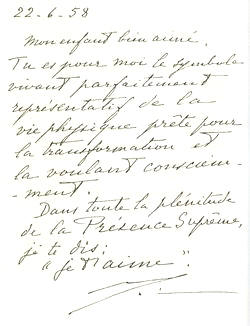 22-6-58
Mon enfant bien aimé.
Tu es pour moi le symbole
vivant parfaitement
représentatif de la
vie physique prête pour
la transformation et
la voulant consciem-
-ment.
Dans toute la plénitude
de la Présence Suprême,
je te dis:
"je t'aime".